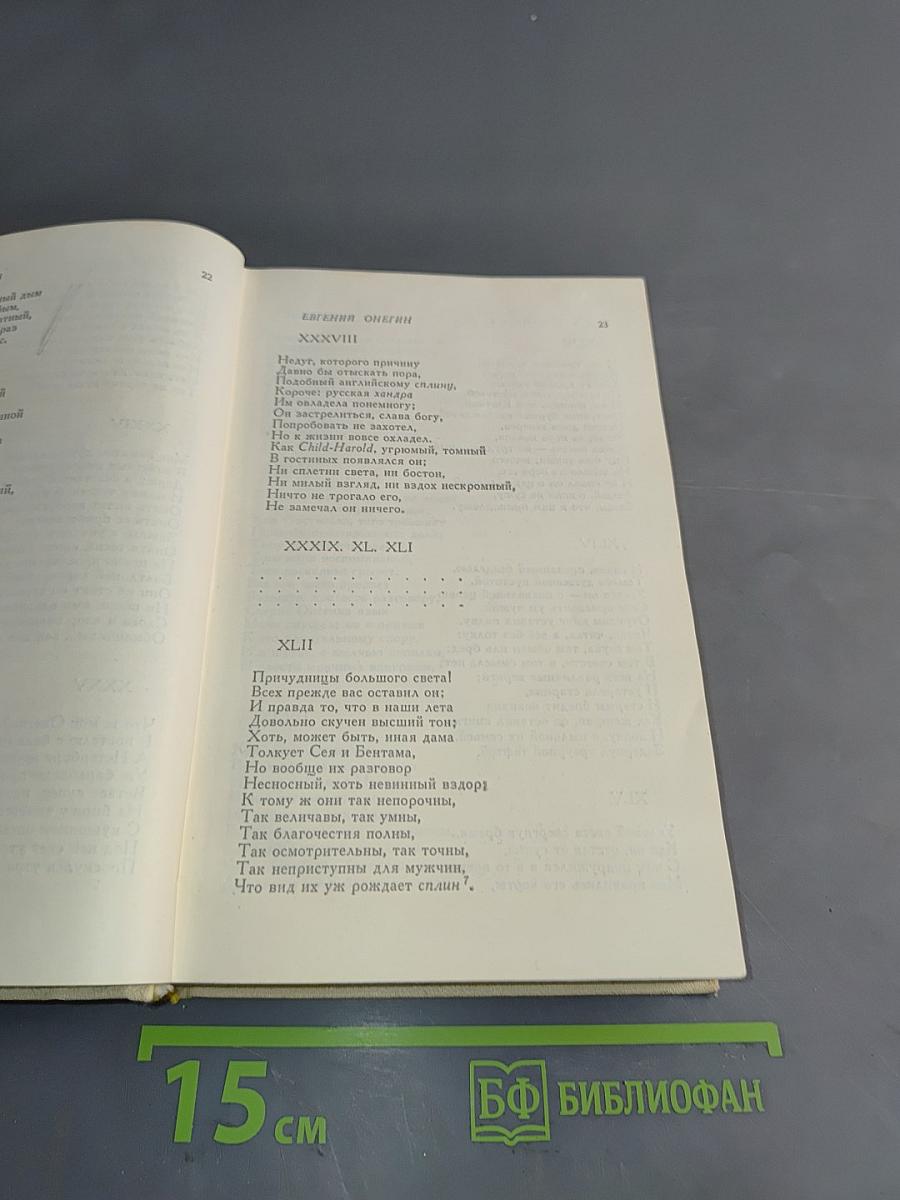 22
ный дым
ый,
ЕВГЕНИЙ ОНЕГИН
23
XXXVIII
Недуг, которого причину
Давно бы отыскать пора,
Подобный английскому сплину,
Короче: русская хандра
Им овладела понемногу;
Он застрелиться, слава богу,
Попробовать не захотел,
Но к жизни вовсе охладел.
Как Child-Harold, угрюмый, томный
В гостиных появлялся он;
Ни сплетни света, ни бостон,
Ни милый взгляд, ни вздох нескромный,
Ничто не трогало его,
Не замечал он ничего.
XXXIX. XL. XLI
. . . . . . . . . . . .
. . . . . . . . . . . .
. . . . . . . . . . . .
XLII
Причудницы большого света!
Всех прежде вас оставил он;
И правда то, что в наши лета
Довольно скучен высший тон;
Хоть, может быть, иная дама
Толкует Сея и Бентама,
Но вообще их разговор
Несносный, хоть невинный вздор;
К тому ж они так непорочны,
Так величавы, так умны,
Так благочестия полны,
Так осмотрительны, так точны,
Так неприступны для мужчин,
Что вид их уж рождает сплин⁷.
15 см
БФ БИБЛИОФАН